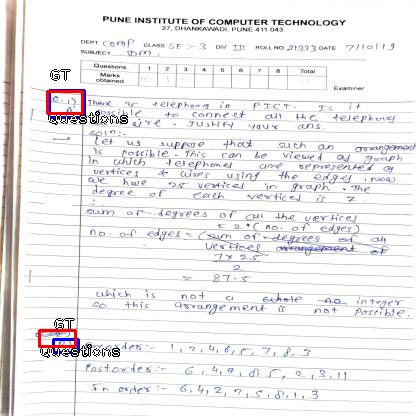 PUNE INSTITUTE OF COMPUTER TECHNOLOGY
27, DHANKAWADI, PUNE 411 043.
DEPT comp CLASS SE:-3 DIV III ROLL NO 21333 DATE 7/10/19
SUBJECT DM.
Questions 1 2 3 4 5 6 7 8 Total
Marks obtained
Examiner
GT
Q-1)
There 25 telephong in PICT. Is it
possible to connect all the telephones
Questions
. Justify your ans.
soln:-
Let us suppose that such an arrangement
is possible. This can be viewed as graph
in which telephones are represented as
vertices & wires using the edges. Now
we have 25 vertices in graph. The
degree of each vertices is 7.
∴
sum of degrees of all the vertices
= 2*(no. of edges)
no. of edges = (sum of degrees of all
vertices arrangement of
7 x 25
2
= 87.5
which is not a whole no integer
so this arrangement is not possible.
GT
Questions
Preorder:- 1, 2, 4, 6, 5, 7, 8, 3
Postorder:- 6, 4, 7, 8, 5, 2, 3, 1
In order:- 6, 4, 2, 7, 5, 8, 1, 3